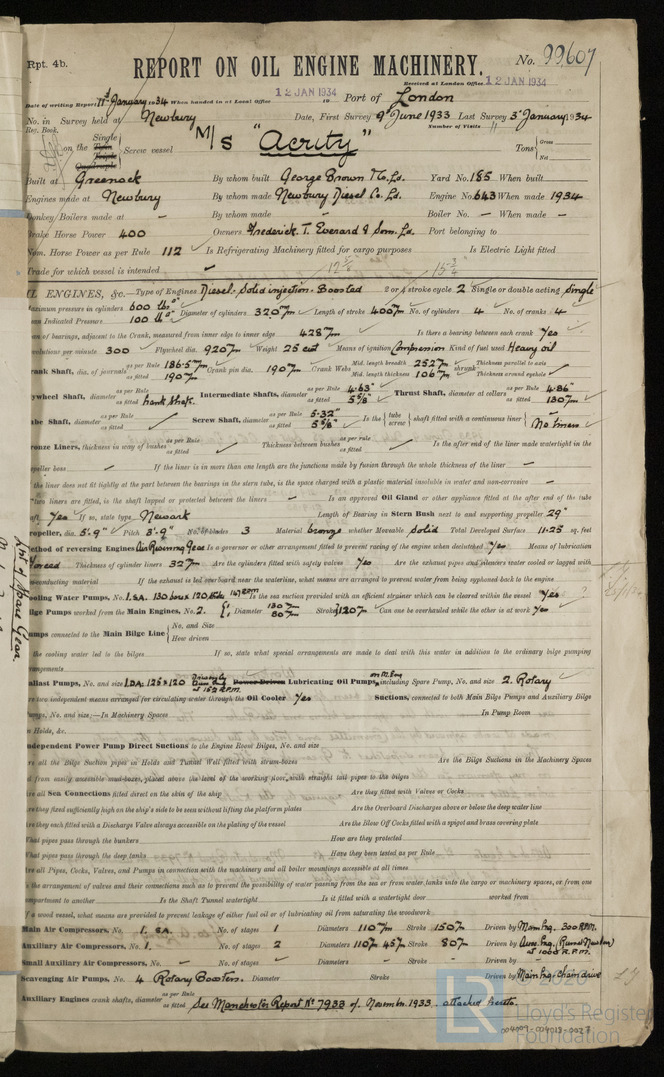 Rpt. 4b.
REPORT ON OIL ENGINE MACHINERY.
No. 99607
Received at London Office 12 JAN 1934
Date of writing Report 11th January 1934 When handed in at Local Office 12 JAN 1934 19 Port of London
No. in Survey held at Newbury Date, First Survey 9th June 1933 Last Survey 5th January 1934
Reg. Book.
Number of Visits
Single
on the Twin Screw vessel M/s "Acrity" Tons Gross
Triple
Quadruple
Net
Built at Greenock By whom built George Brown & Co. Ld. Yard No. 185 When built
Engines made at Newbury By whom made Newbury Diesel Co. Ld. Engine No. 643 When made 1934
Donkey Boilers made at - By whom made - Boiler No. - When made -
Brake Horse Power 400 Owners Frederick T. Everard & Sons Ld. Port belonging to
Nom. Horse Power as per Rule 112 Is Refrigerating Machinery fitted for cargo purposes Is Electric Light fitted
Trade for which vessel is intended
OIL ENGINES, &c. Type of Engines Diesel. Solid injection. Boosted 2 or 4 stroke cycle 2 Single or double acting Single
Maximum pressure in cylinders 600 lbs Diameter of cylinders 320 m/m Length of stroke 400 m/m No. of cylinders 4 No. of cranks 4
Mean Indicated Pressure 100 lbs
Span of bearings, adjacent to the Crank, measured from inner edge to inner edge 428 m/m Is there a bearing between each crank Yes
Revolutions per minute 300 Flywheel dia. 920 m/m Weight 25 cwt Means of ignition Compression Kind of fuel used Heavy oil
Crank Shaft, dia. of journals as per Rule 186.5 m/m as fitted 190 m/m Crank pin dia. 190 m/m Crank Webs Mid. length breadth 252 m/m Mid. length thickness 106 m/m shrunk Thickness parallel to axis Thickness around eyehole
Flywheel Shaft, diameter as per Rule as fitted Crank Shaft Intermediate Shafts, diameter as per Rule 4.63" as fitted 5 5/8" Thrust Shaft, diameter at collars as per Rule 4.86" as fitted 130 m/m
Tube Shaft, diameter as per Rule as fitted Screw Shaft, diameter as per Rule 5.32" as fitted 5 5/8" Is the tube screw shaft fitted with a continuous liner No liners
Bronze Liners, thickness in way of bushes as per Rule as fitted Thickness between bushes as per rule as fitted Is the after end of the liner made watertight in the
propeller boss - If the liner is in more than one length are the junctions made by fusion through the whole thickness of the liner -
If the liner does not fit tightly at the part between the bearings in the stern tube, is the space charged with a plastic material insoluble in water and non-corrosive -
If two liners are fitted, is the shaft lapped or protected between the liners - Is an approved Oil Gland or other appliance fitted at the after end of the tube
shaft Yes If so, state type Newark Length of Bearing in Stern Bush next to and supporting propeller 29"
Propeller, dia. 5'.9" Pitch 3'.9" No. of blades 3 Material bronze whether Moveable Solid Total Developed Surface 11.25 sq. feet
Method of reversing Engines Air Reversing Gear Is a governor or other arrangement fitted to prevent racing of the engine when declutched Yes Means of lubrication
Forced Thickness of cylinder liners 32 m/m Are the cylinders fitted with safety valves Yes Are the exhaust pipes and silencers water cooled or lagged with
non-conducting material If the exhaust is led overboard near the waterline, what means are arranged to prevent water from being syphoned back to the engine
Cooling Water Pumps, No. 1. SA. 130 bore x 120 Is the sea suction provided with an efficient strainer which can be cleared within the vessel Yes
Bilge Pumps worked from the Main Engines, No. 2. Diameter 130 m/m 80 m/m Stroke 120 m/m Can one be overhauled while the other is at work Yes
Pumps connected to the Main Bilge Line No. and Size How driven
Is the cooling water led to the bilges If so, state what special arrangements are made to deal with this water in addition to the ordinary bilge pumping
arrangements
Ballast Pumps, No. and size 1 DA. 125 x 120 Power Driven Lubricating Oil Pumps, including Spare Pump, No. and size 2. Rotary
Are two independent means arranged for circulating water through the Oil Cooler Yes Suctions, connected to both Main Bilge Pumps and Auxiliary Bilge
Pumps, No. and size,—In Machinery Spaces In Pump Room
In Holds, &c.
Independent Power Pump Direct Suctions to the Engine Room Bilges, No. and size
Are all the Bilge Suction pipes in Holds and Tunnel Well fitted with strum-boxes Are the Bilge Suctions in the Machinery Spaces
led from easily accessible mud-boxes, placed above the level of the working floor, with straight tail pipes to the bilges
Are all Sea Connections fitted direct on the skin of the ship Are they fitted with Valves or Cocks
Are they fixed sufficiently high on the ship's side to be seen without lifting the platform plates Are the Overboard Discharges above or below the deep water line
Are they each fitted with a Discharge Valve always accessible on the plating of the vessel Are the Blow Off Cocks fitted with a spigot and brass covering plate
What pipes pass through the bunkers How are they protected
What pipes pass through the deep tanks Have they been tested as per Rule
Are all Pipes, Cocks, Valves, and Pumps in connection with the machinery and all boiler mountings accessible at all times
Is the arrangement of valves and their connections such as to prevent the possibility of water passing from the sea or from water tanks into the cargo or machinery spaces, or from one
compartment to another Is the Shaft Tunnel watertight Is it fitted with a watertight door worked from
If a wood vessel, what means are provided to prevent leakages of either fuel oil or of lubricating oil from saturating the woodwork
Main Air Compressors, No. 1. SA. No. of stages 1 Diameters 110 m/m Stroke 150 m/m Driven by Main Eng. 300 R.P.M.
Auxiliary Air Compressors, No. 1. No. of stages 2 Diameters 110 m/m 45 m/m Stroke 80 m/m Driven by Aux. Eng. at 1000 R.P.M.
Small Auxiliary Air Compressors, No. - No. of stages - Diameters - Stroke - Driven by -
Scavenging Air Pumps, No. 4 Rotary Boosters. Diameter Stroke Driven by Main Eng. chain drive
Auxiliary Engines crank shafts, diameter as per Rule as fitted See Manchester Report No 7933 of November 1933. attached hereto.
List of Spare Gear
© 2020
LR
Lloyd's Register
Foundation
004009-004013-0027